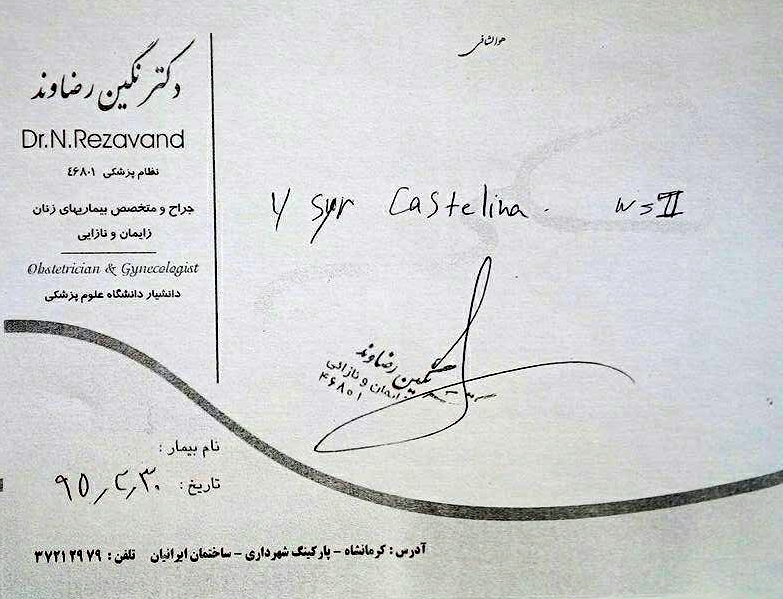 هوالشافی
دکتر نگین رضاوند
Dr.N.Rezavand
نظام پزشکی ٤۶۸۰۱
جراح و متخصص بیماریهای زنان
زایمان و نازایی
Obstetrician & Gynecologist
دانشیار دانشگاه علوم پزشکی
syr Castelina. N = II
نگین رضاوند
زایمان و نازائی
۴۶۸۰۱
نام بیمار :
تاریخ : ۹۵
آدرس : کرمانشاه - پارکینگ شهرداری - ساختمان ایرانیان تلفن : ۳۷۲۱۲۹۷۹